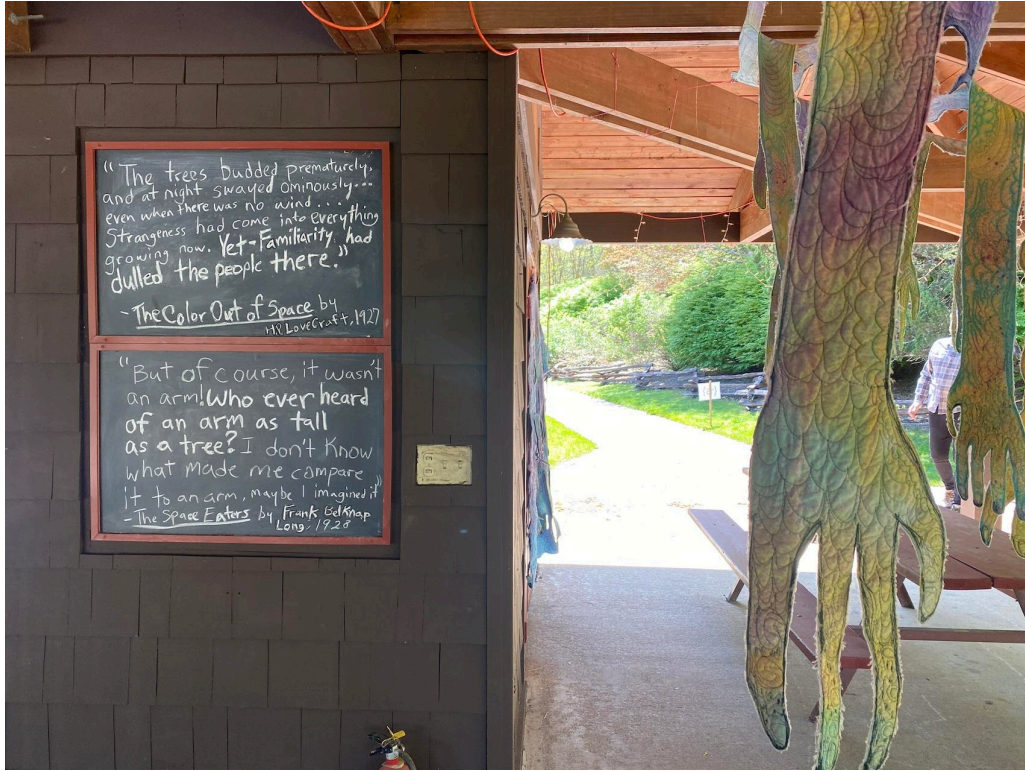 “The trees budded prematurely,
and at night swayed ominously...
even when there was no wind....
Strangeness had come into everything
growing now. Yet-Familiarity had
dulled the people there.”
-The Color Out of Space by
H.P. LoveCraft, 1927
“But of course, it wasn't
an arm! Who ever heard
of an arm as tall
as a tree? I don't know
what made me compare
it to an arm, maybe I imagined it”
-The Space Eaters by Frank Belknap
Long, 1928